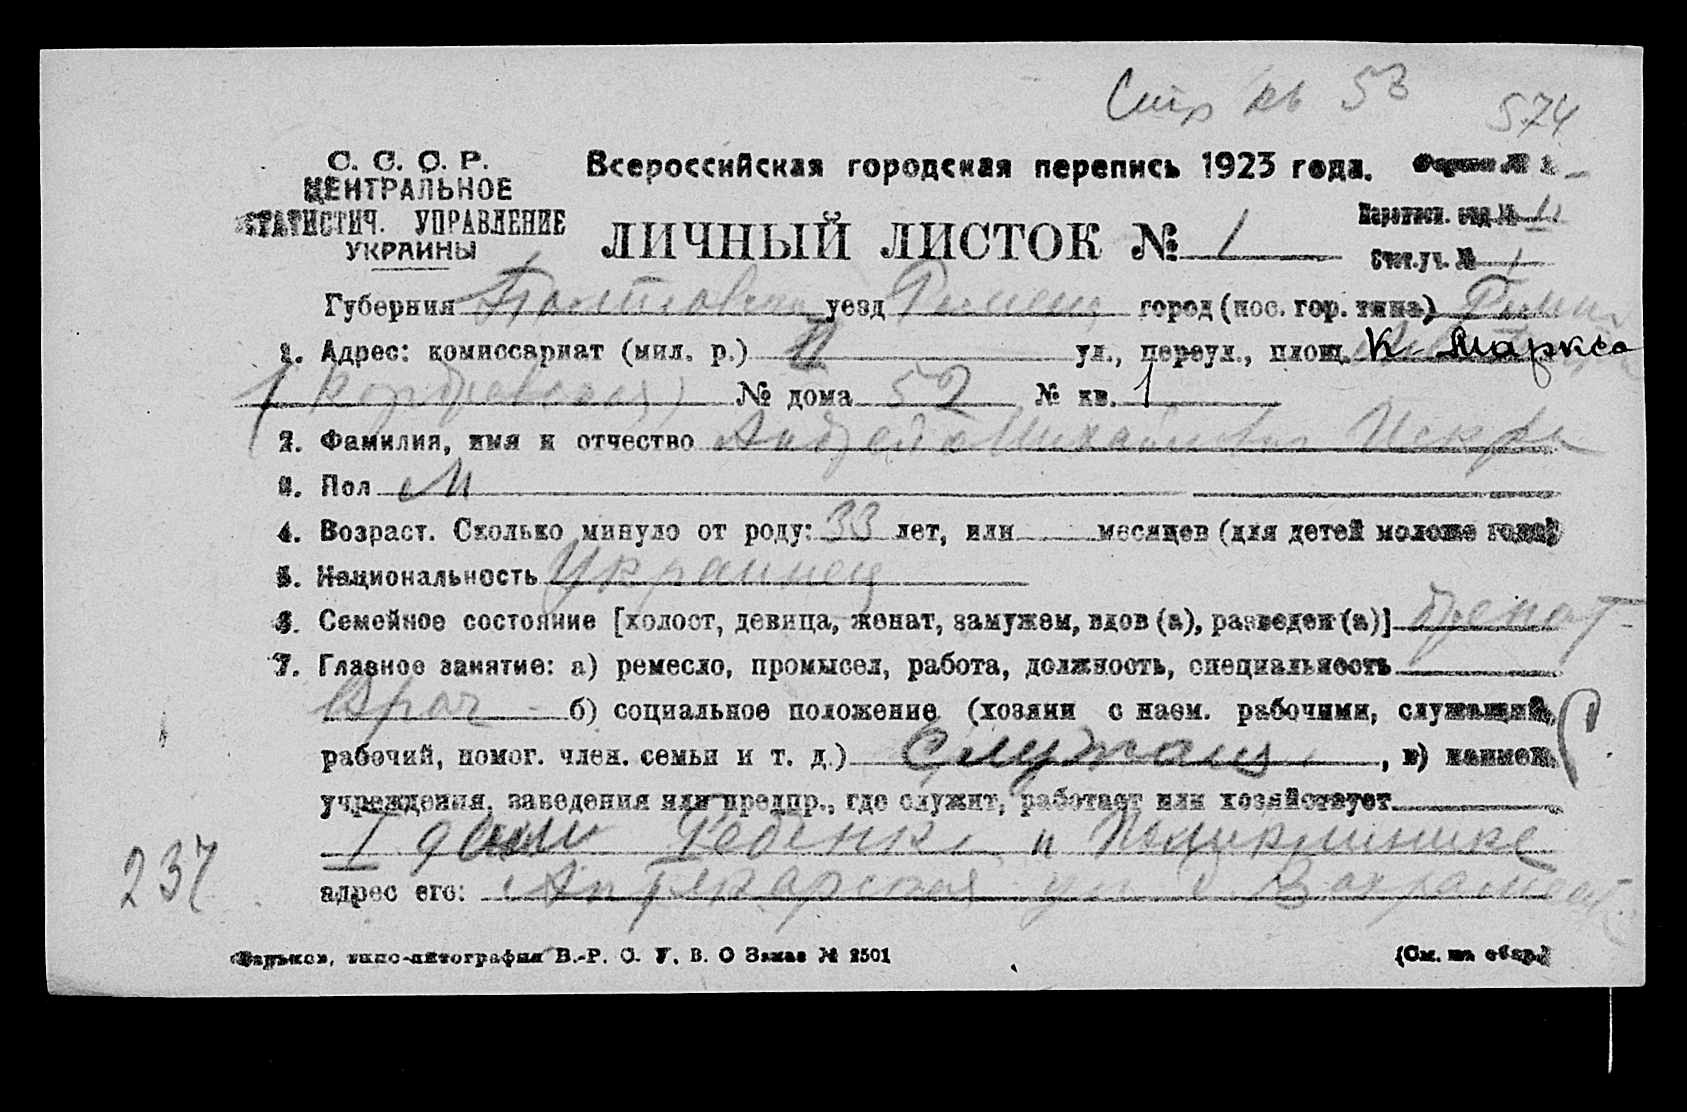 Стр кв 53
574
С. С. С. Р.
ЦЕНТРАЛЬНОЕ
СТАТИСТИЧ. УПРАВЛЕНИЕ
УКРАИНЫ
Всероссийская городская перепись 1923 года.
Форма № 1
ЛИЧНЫЙ ЛИСТОК № 1
Переписн. отд. №
Счет. уч. № 1
Губерния Полтавская уезд Роменск город (пос. гор. типа) Ромны
1. Адрес: комиссариат (мил. р.) II ул., переул., площ. К Маркса
№ дома 52 № кв. 1
2. Фамилия, имя и отчество Андрей Михайлович Искра
3. Пол М
4. Возраст. Сколько минуло от роду: 33 лет, или месяцев (для детей моложе года)
5. Национальность Украинец
6. Семейное состояние [холост, девица, женат, замужем, вдов (а), разведен (а)] женат
7. Главное занятие: а) ремесло, промысел, работа, должность, специальность
Врач б) социальное положение (хозяин с наем. рабочими, служащий,
рабочий, помог. член. семьи и т. д.) Служащ , в) наимен.
учреждения, заведения или предпр., где служит, работает или хозяйствует
I дом Ребенка и Поликлинике
237
адрес его: Аптекарская ул
Харьков, типо-литография В.-Р. О. У. В. О Заказ № 2501
(См. на обор.)